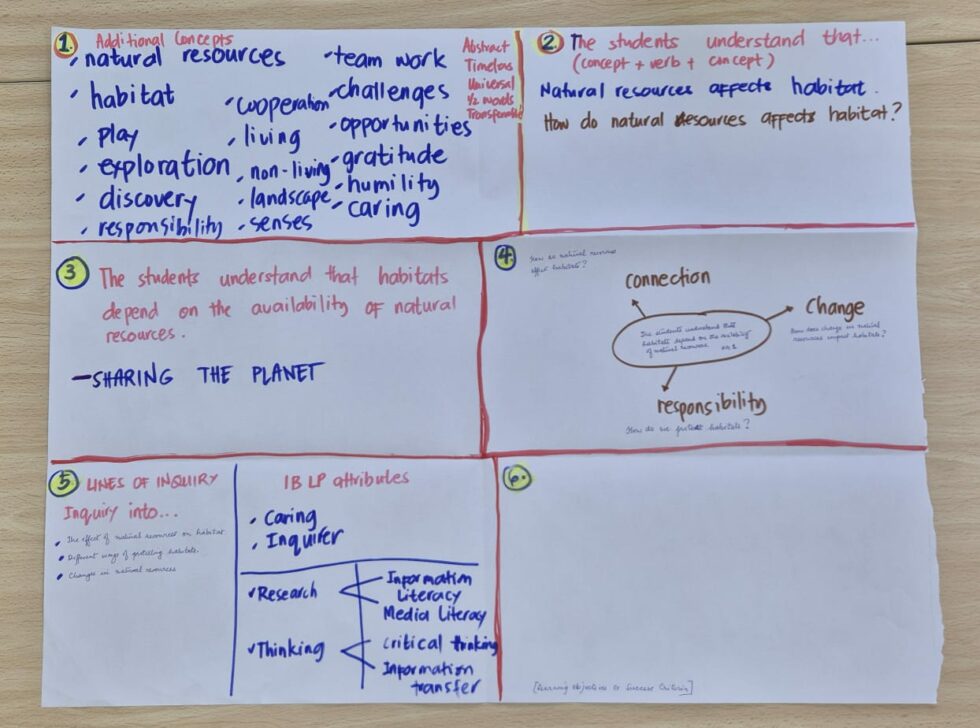 1. Additional Concepts
natural resources
habitat
play
exploration
discovery
responsibility
cooperation
living
non-living
landscape
senses
team work
challenges
opportunities
gratitude
humility
caring
Abstract
Timeless
Universal
1/2 words
Transferable
2. The students understand that...
(concept + verb + concept)
Natural resources affects habitat.
How do natural resources affects habitat?
3 The students understand that habitats
depend on the availability of natural
resources.
—SHARING THE PLANET
4 How do natural resources
affect habitats?
connection
Change
How does change in natural
resources impact habitats?
The students understand that
habitats depend on the availability
of natural resources.
responsibility
How do we protect habitats?
5 LINES OF INQUIRY
Inquiry into...
The effect of natural resources on habitat
Different ways of protecting habitats.
Changes in natural resources
IB LP attributes
Caring
Inquirer
Research
Information
Literacy
Media Literacy
Thinking
Critical thinking
Information
transfer
6.
[Learning objectives & Success Criteria]